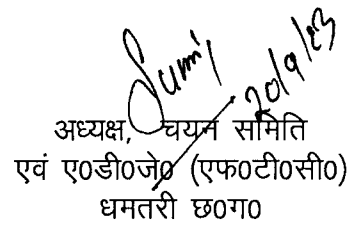 20/9/23
अध्यक्ष, चयन समिति
एवं ए0डी0जे0 (एफ0टी0सी0)
धमतरी छ0ग0